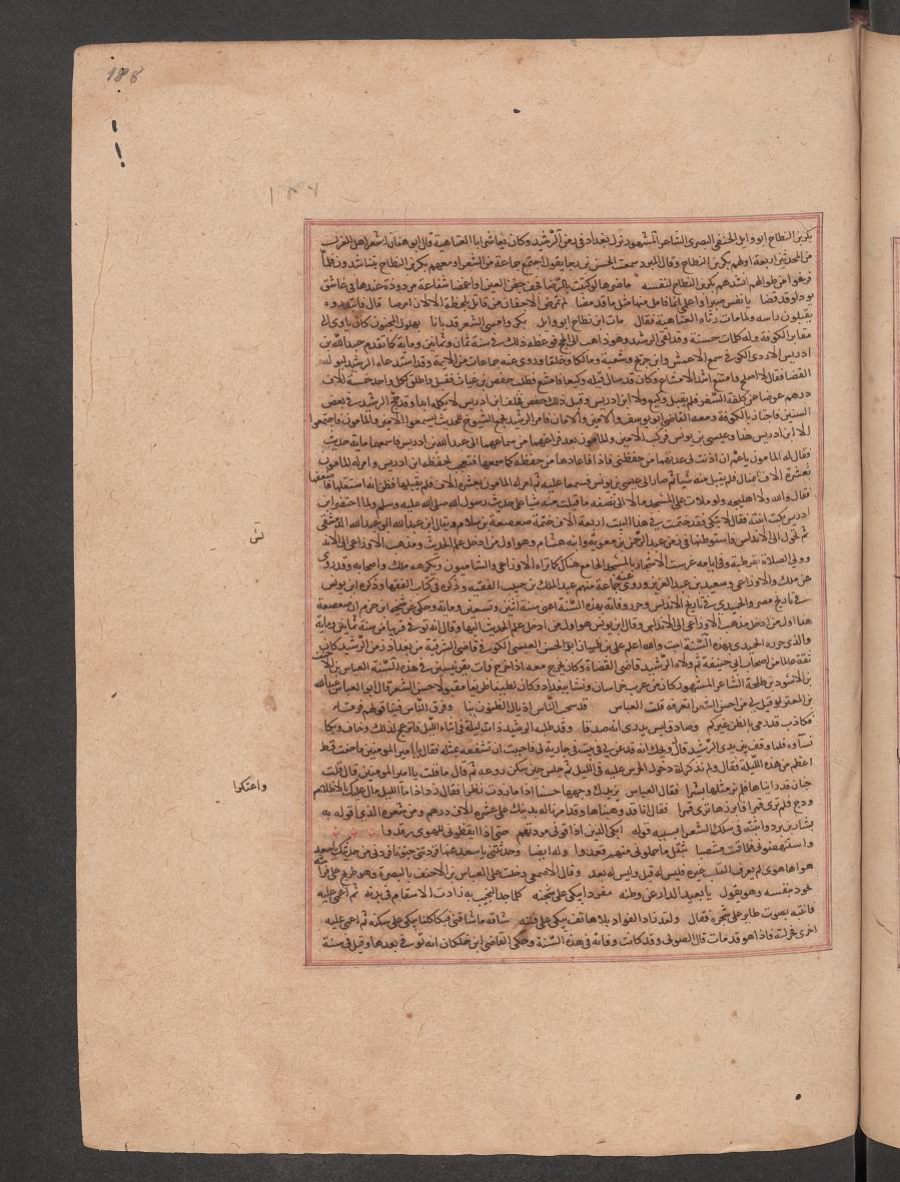 188
١٨٧
بكر بن النطاح ابو وايل الحنفي البصري الشاعر المشهور نزل بغداد في زمن الرشيد وكان يعاشر ابا العتاهية قال ابو هفان اشعر اهل الغزل
من المحدثين اربعة اولهم بكر بن النطاح وقال المبرد سمعت الحسن بن رجا يقول اجتمع جماعة من الشعرا ومعهم بكر بن النطاح يتناشدون فلما
فرغوا من طوالهم انشدهم بكر بن النطاح لنفسه ما ضرها لو كتبت بالرضا فجف جفن العين او اغمضا شفاعة مردودة عندها في عاشق
يود لو قد قضا يا نفس صبرا واعلمي انما يامل منها مثل ما قد مضا لم تمرض الاجفان من قاتل بلحظه الا لان امرضا قال فابتدروه
يقبلون راسه ولما مات رثاه ابو العتاهية فقال مات ابن نطاح ابو وايل بكر وامسى الشعر قد بانا بهلول المجنون كان ياوي الى
مقابر الكوفة وله كلمات حسنة وقد لقي الرشيد وهو ذاهب الى الحج فوعظه وذلك في سنة ثمان وثمانين وماية كما تقدم عبد الله بن
ادريس الاودي الكوفي سمع الاعمش وابن جريج وشعبة ومالكا وخلقا وروى عنه جماعات من الايمة وقد استدعاه الرشيد ليوليه
القضا فقال لا اصلح وامتنع اشد الامتناع وكان قد سال قبله وكيعا فامتنع فطلب حفص بن غياث فقبل واطلق لكل واحد خمسة الاف
درهم عوضا عن كلفة السفر فلم يقبل وكيع ولا ابن ادريس وقبل ذلك حفص فحلف ابن ادريس لا يكلمه ابدا وقد حج الرشيد في بعض
السنين فاجتاز بالكوفة ومعه القاضي ابو يوسف والامين والمامون فامر الرشيد يجمع الشيوخ للحديث ليسمعوا الامين والمامون فاجتمعوا
الا ابن ادريس هذا وعيسى بن يونس فركب الامين والمامون بعد فراغهما من سماعهما الى عبد الله بن ادريس فاسمعهما ماية حديث
فقال له المامون يا عم ان اذنت لي عدتها من حفظي فاذن له فاعادها من حفظه كما سمعها فتعجب لحفظه ابن ادريس وامر له المامون
بعشرة الاف فلم يقبل منه شيا ثم صارا الى عيسى بن يونس فسمعا عليه ثم امر له المامون بعشرة الاف فلم يقبلها فظن انه استقلها فاضعفها
فقال والله ولا اهليلجة ولو ملات على المسجد مالا الى سقفه ما قبلت منه شيا على حديث رسول الله صلى الله عليه وسلم ولما احتضر ابن
ادريس بكت ابنته فقال لا تبكي فقد ختمت في هذا البيت اربعة الاف ختمة صعصعة بن سلام ويقال ابن عبد الله ابو عبد الله الدمشقي
ثم تحول الى الاندلس واستوطنها في زمن عبد الرحمن بن معوية وابنه هشام وهو اول من ادخل علم الحديث ومذهب الاوزاعي الى الاندلس
وولي الصلاة بقرطبة وفي ايامه غرست الاشجار بالمسجد الجامع هنالك كما يراه الاوزاعي والشاميون ويكرهه ملك واصحابه وقد روى
عن ملك والاوزاعي وسعيد بن عبد العزيز وروى عنه جماعة منهم عبد الملك بن حبيب الفقيه وذكره في كتاب الفقها وذكره ابن يونس
في تاريخ مصر والحميدي في تاريخ الاندلس وحرر وفاته بهذه السنة اعني سنة اثنتين وتسعين وماية وحكى عن شيخه ابن حزم ان صعصعة
هذا اول من ادخل مذهب الاوزاعي الى الاندلس وقال ابن يونس هو اول من ادخل علم الحديث اليها وقال انه توفي قريبا من سنة ثمانين وماية
والذي حرره الحميدي بهذه السنة اثبت والله اعلم علي بن ظبيان ابو الحسن العبسي الكوفي قاضي الشرقية من بغداد زمن الرشيد كان
ثقة عالما من اصحاب ابي حنيفة ثم ولاه الرشيد قاضي القضاة وكان يخرج معه اذا خرج فمات بقرميسين في هذه السنة العباس بن الاحنف
بن الاسود بن طلحة الشاعر المشهور كان من عرب خراسان ونشا ببغداد وكان لطيفا ظريفا مقبولا حسن الشعر قال ابو العباس عبد الله
بن المعتز لو قيل لي من احسن الناس شعرا تعرفه لقلت العباس قد سحب الناس اذيال الظنون بنا وفرق الناس فينا قولهم فرقا
فكاذب قد رمى بالظن غيركم وصادق ليس يدري انه صدقا وقد طلبه الرشيد ذات ليلة في اثناء الليل فانزعج لذلك وخاف وبكا
نساوه فلما وقف بين يدي الرشيد قال ويحك انه قد عن لي في بيت في جارية لي فاحببت ان تشفعه بمثله فقال يا امير المومنين ما خفت قط
اعظم من هذه الليلة فقال ولم فذكر له دخول الحرس عليه في الليل ثم جلس حتى سكن روعه ثم قال ما قلت يا امير المومنين قال قلت
جنان قد رايناها فلم نر مثلها بشرا فقال العباس يزيدك وجهها حسنا اذا ما زدته نظرا فقال زد اذا ما الليل مال عليك بالاظلام
ودج فلم ترى قمرا فابرزها ترى قمرا فقال انا قد وهبناها وقد امرنا له بديتك على عشرة الاف درهم ومن شعره الذي اقر له به
بشار بن برد واثبته في سلك الشعرا بسببه قوله ابكي الذين اذاقوني مودتهم حتى اذا ايقظوني للهوى رقدوا
واستنهضوني فلما قمت منتصبا بثقل ما حملوني منهم قعدوا وله ايضا وحدثتني يا سعد عنها فزدتني جنونا فزدني من حديثك يا سعد
هواها هوى لم يعرف القلب غيره فليس له قبل وليس له بعد وقال الاصمعي دخلت على العباس بن الاحنف بالبصرة وهو طريح على فراشه
يجود بنفسه وهو يقول يا بعيد الدار عن وطنه مفردا يبكي على شجنه كلما جد النحيب به زادت الاسقام في بدنه ثم اغمي عليه
فانتبه بصوت طاير على شجرة فقال ولقد زاد الفواد بلا هاتف يبكي على فننه شاقه ما شاقني فبكا كلنا يبكي على سكنه ثم اغمي عليه
اخرى فحركته فاذا هو قد مات قال الصولي وقد كانت وفاته في هذه السنة وحكى القاضي ابن خلكان انه توفي بعدها وقيل في سنة
واعتكوا